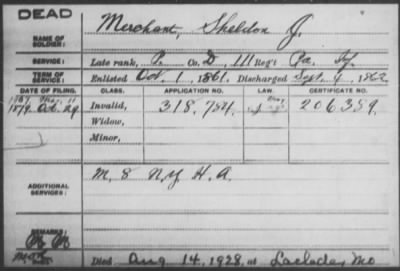 DEAD
NAME OF SOLDIER: Merchant, Sheldon J.
SERVICE: Late rank, P. Co. D, 111 Reg't Pa. Inf.
TERM OF SERVICE: Enlisted Oct. 1, 1861. Discharged Sept. 4, 1862
DATE OF FILING. CLASS. APPLICATION NO. LAW. CERTIFICATE NO.
1879 Oct. 29 Invalid, 318,784 206389
Widow,
Minor,
ADDITIONAL SERVICES: M. 8 N.Y. H.A.
REMARKS:
Died Aug 14, 1928, at Laclede, Mo